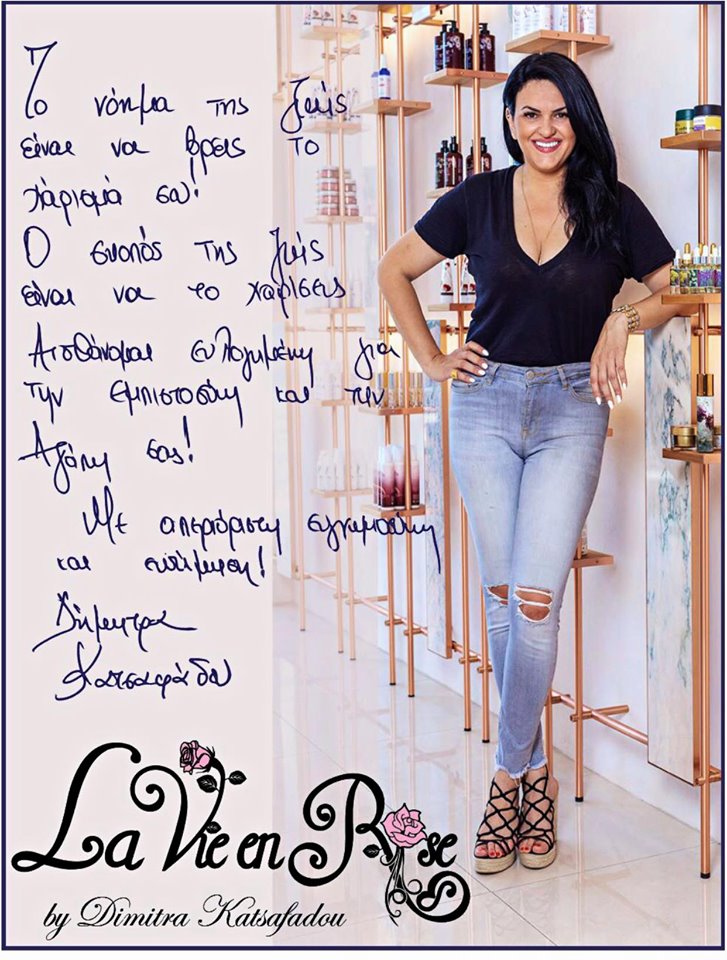 Το νόημα της ζωής
είναι να βρεις το
χάρισμά σου!
Ο σκοπός της ζωής
είναι να το χαρίσεις
Αισθάνομαι ευλογημένη για
την εμπιστοσύνη και την
Αγάπη σας!
Με απεριόριστη ευγνωμοσύνη
και εκτίμηση!
Δήμητρα
Κατσαφάδου
La Vie en Rose
by Dimitra Katsafadou